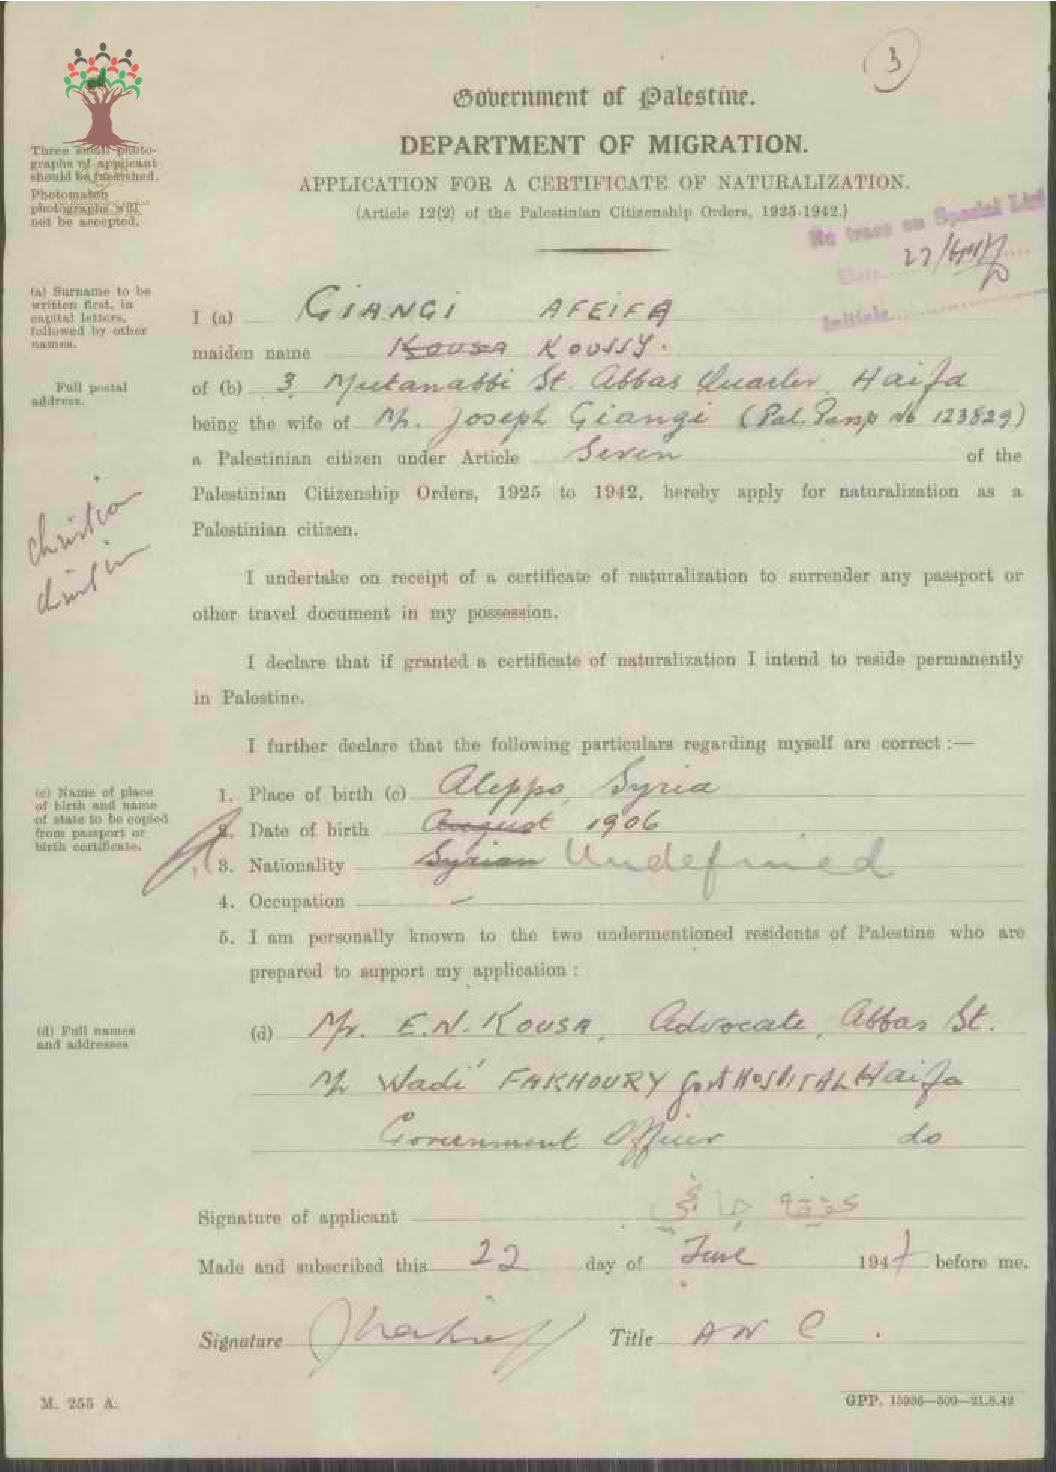 3
Government of Palestine.
DEPARTMENT OF MIGRATION.
APPLICATION FOR A CERTIFICATE OF NATURALIZATION.
(Article 12(2) of the Palestinian Citizenship Orders, 1925-1942.)
Three small photo-
graphs of applicant
should be furnished.
Photomaton
photographs will
not be accepted.
No trace on Special List
Date 27/
Initials
(a) Surname to be
written first, in
capital letters,
followed by other
names.
I (a) GIANGI AFEIFA
maiden name KOUSA KOUSSY.
Full postal
address.
of (b) 3, Mutanabbi St. Abbas Quarter, Haifa
being the wife of Mr. Joseph Giangi (Pal. Passp No 123829)
a Palestinian citizen under Article Seven of the
Palestinian Citizenship Orders, 1925 to 1942, hereby apply for naturalization as a
Palestinian citizen.
christian
christian
I undertake on receipt of a certificate of naturalization to surrender any passport or
other travel document in my possession.
I declare that if granted a certificate of naturalization I intend to reside permanently
in Palestine.
I further declare that the following particulars regarding myself are correct :—
(c) Name of place
of birth and name
of state to be copied
from passport or
birth certificate.
1. Place of birth (c) Aleppo, Syria
2. Date of birth August 1906
3. Nationality Syrian Undefined
4. Occupation —
5. I am personally known to the two undermentioned residents of Palestine who are
prepared to support my application :
(d) Full names
and addresses
(d) Mr. E.N. KOUSA, Advocate, Abbas St.
Mr Wadi' FAKHOURY Govt HOSPITAL Haifa
Government Officer do
Signature of applicant عفيفه جانجي
Made and subscribed this 22 day of June 1947 before me.
Signature Title
M. 255 A.
GPP. 15936—500—21.8.42